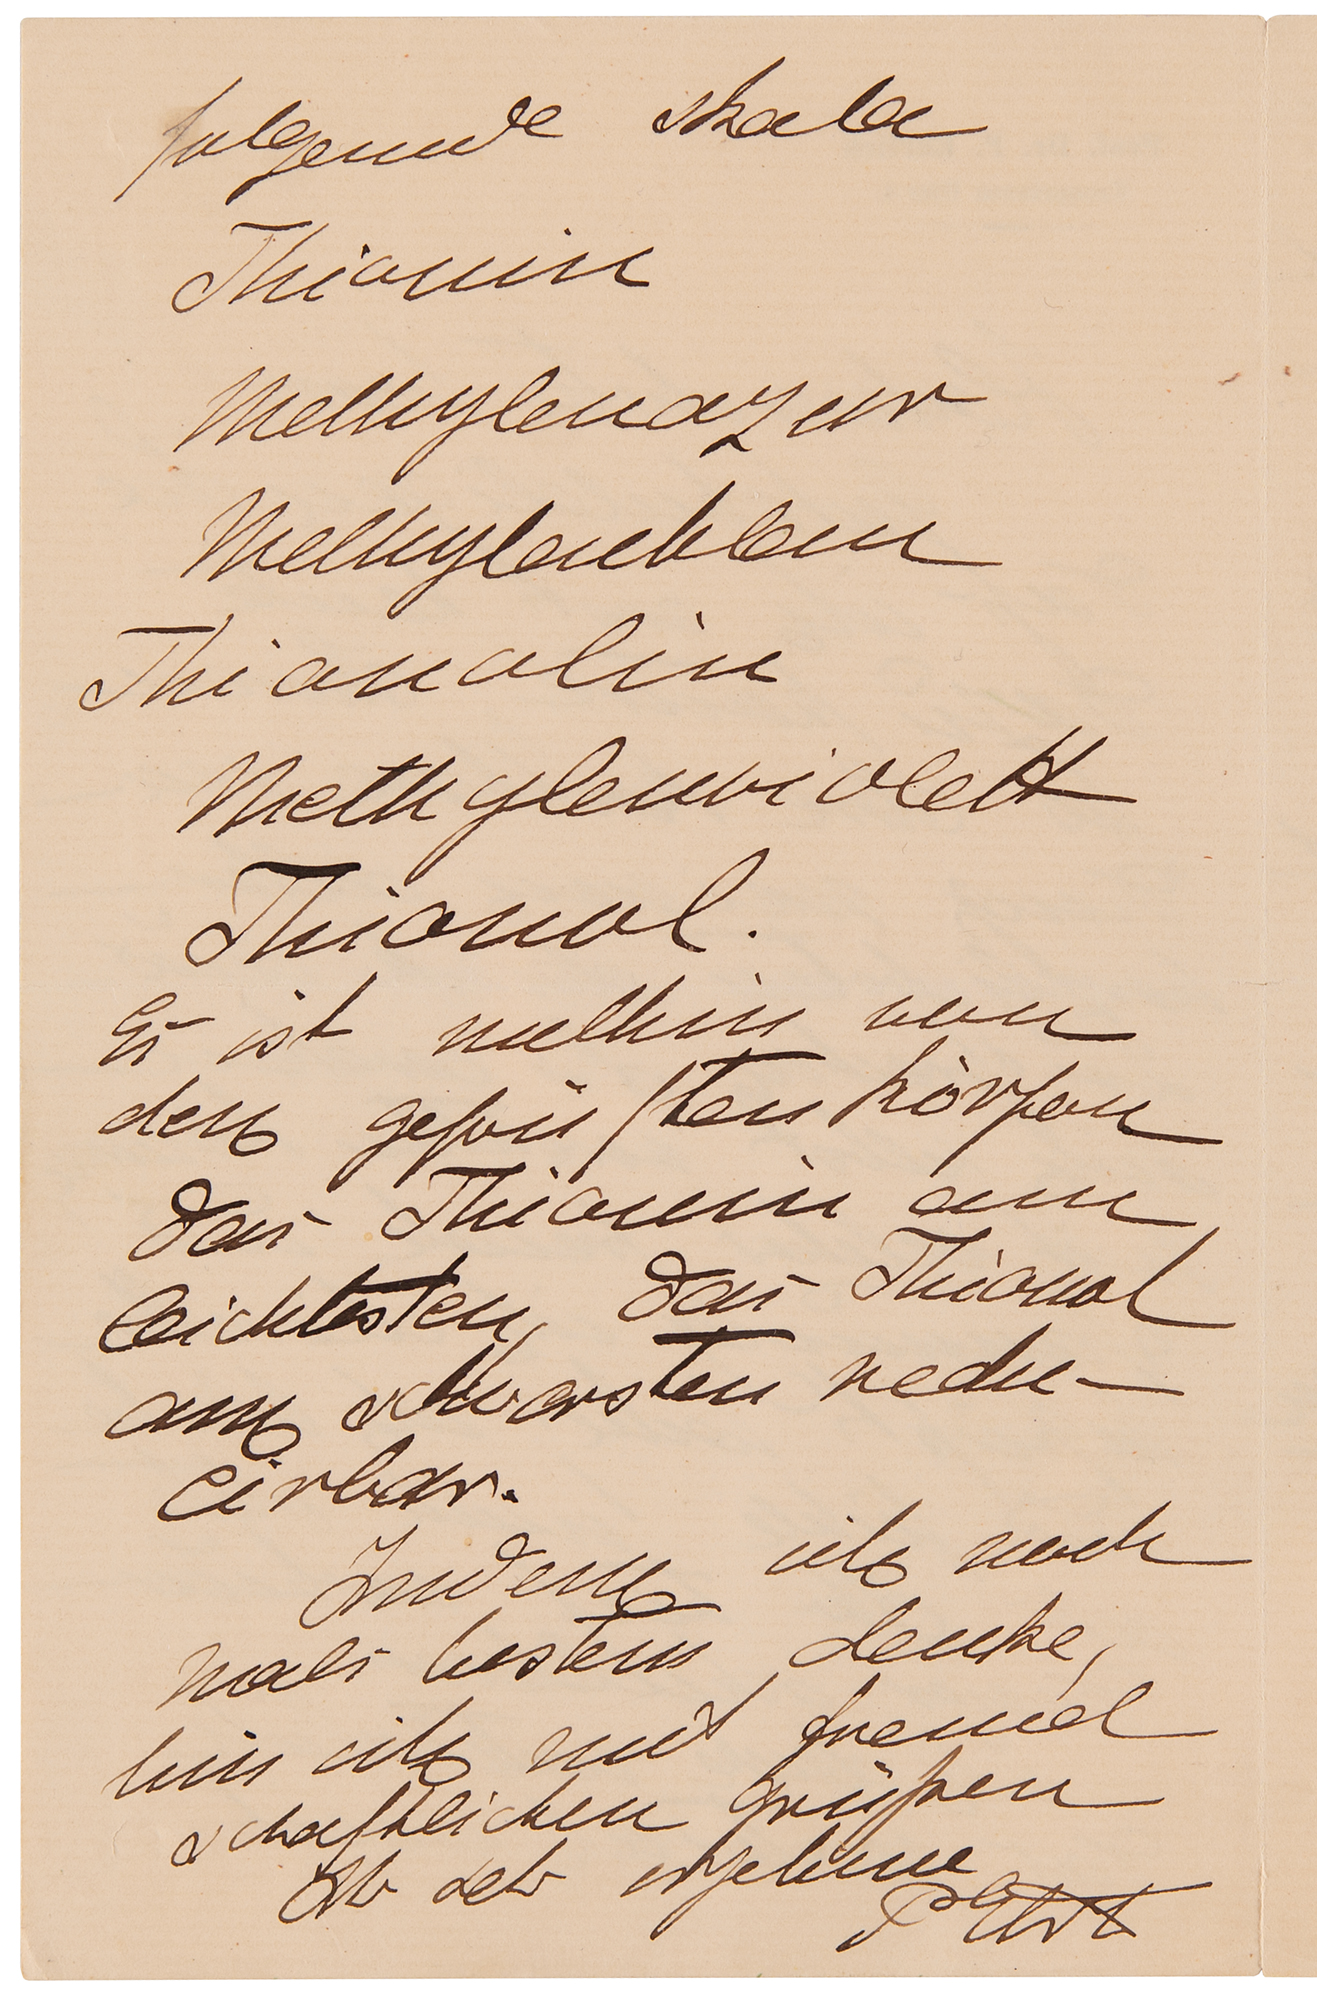 folgende Skala
Thionin
Methylenazur
Methylenblau
Thionolin
Methylenviolett
Thionol.
Es ist mithin von
den geprüften Körpern
das Thionin am
leichtesten, das Thionol
am schwersten redu-
cirbar.
Indem ich noch
mals bestens danke,
bin ich mit freund
schaftlichen Grüßen
Ihr sehr ergebener
P Ehrlich